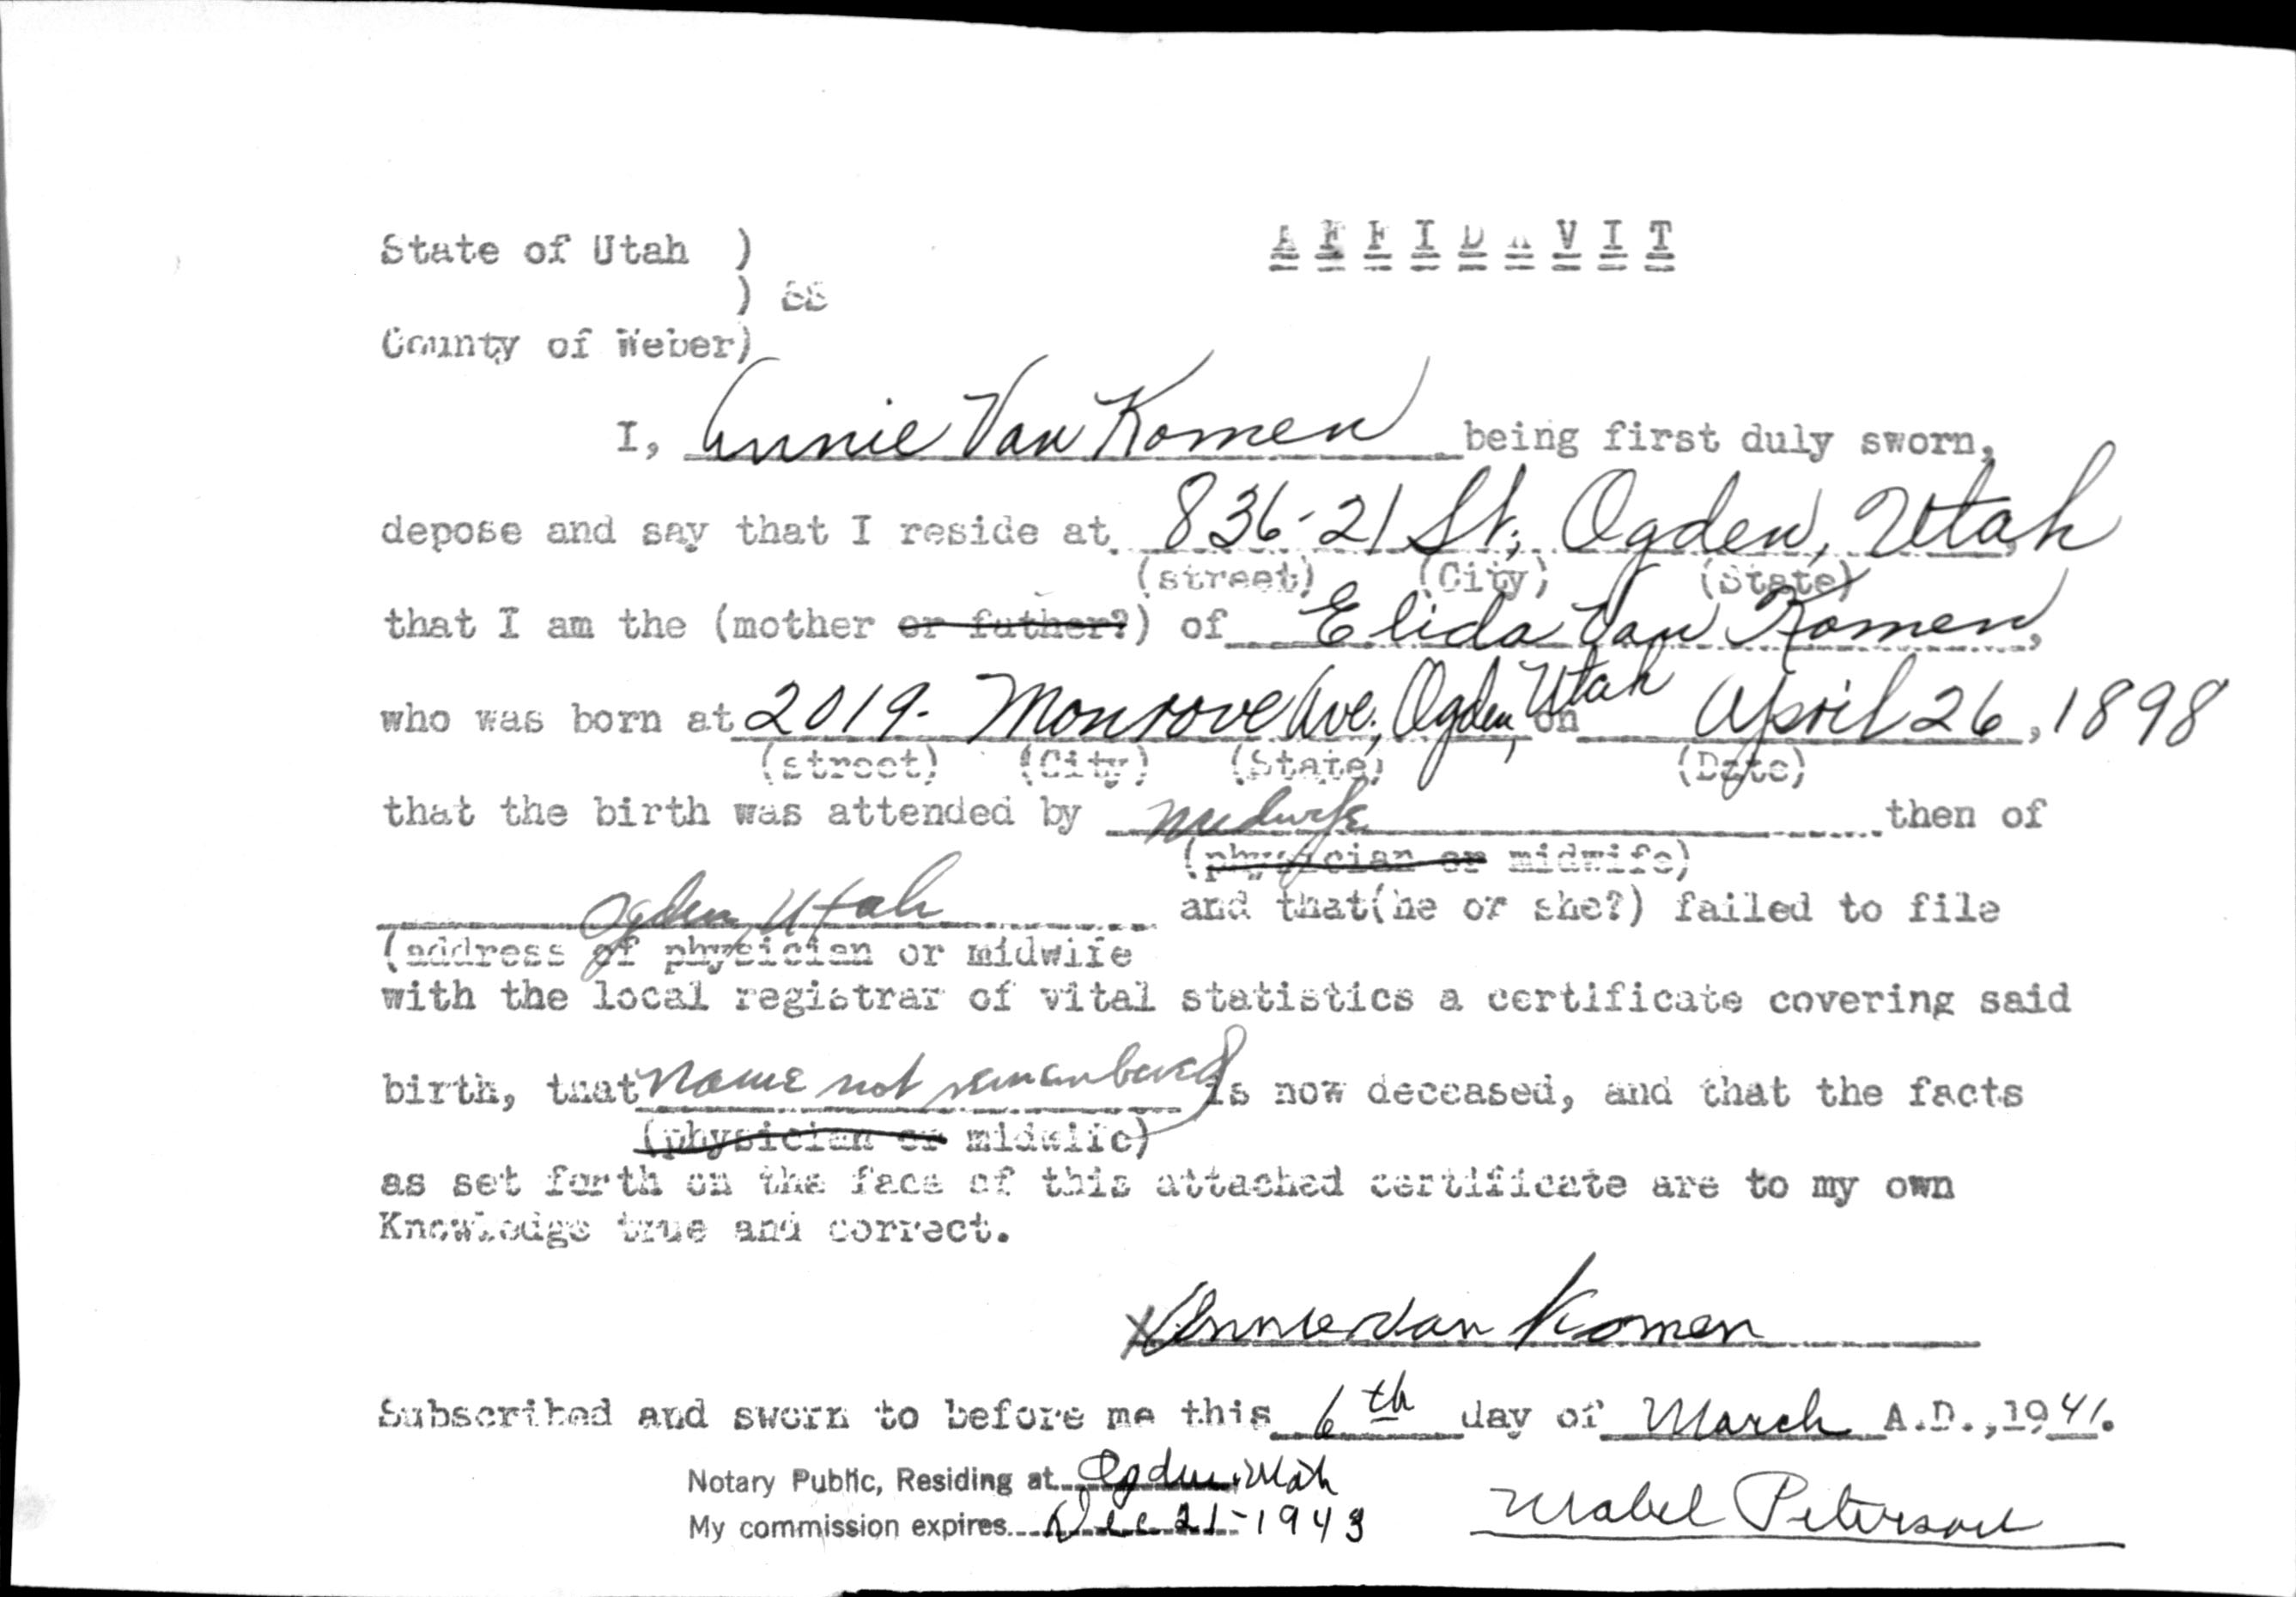 State of Utah )
A F F I D A V I T
) SS
County of Weber)
I, Annie Van Komen being first duly sworn,
depose and say that I reside at 836-21 St; Ogden, Utah
(street) (City) (State)
that I am the (mother or father?) of Elida Van Komen,
who was born at 2019- Monrove Ave; Ogden, Utah on April 26, 1898
(street) (City) (State) (Date)
that the birth was attended by midwife then of
(physician or midwife)
Ogden, Utah and that(he or she?) failed to file
(address of physician or midwife
with the local registrar of vital statistics a certificate covering said
birth, that name not remembered is now deceased, and that the facts
(physician or midwife)
as set forth on the face of this attached certificate are to my own
Knowledge true and correct.
X Annie Van Komen
Subscribed and sworn to before me this 6th day of March A.D.,1941.
Notary Public, Residing at Ogden, Utah
My commission expires Dec 21-1943
Mabel Peterson